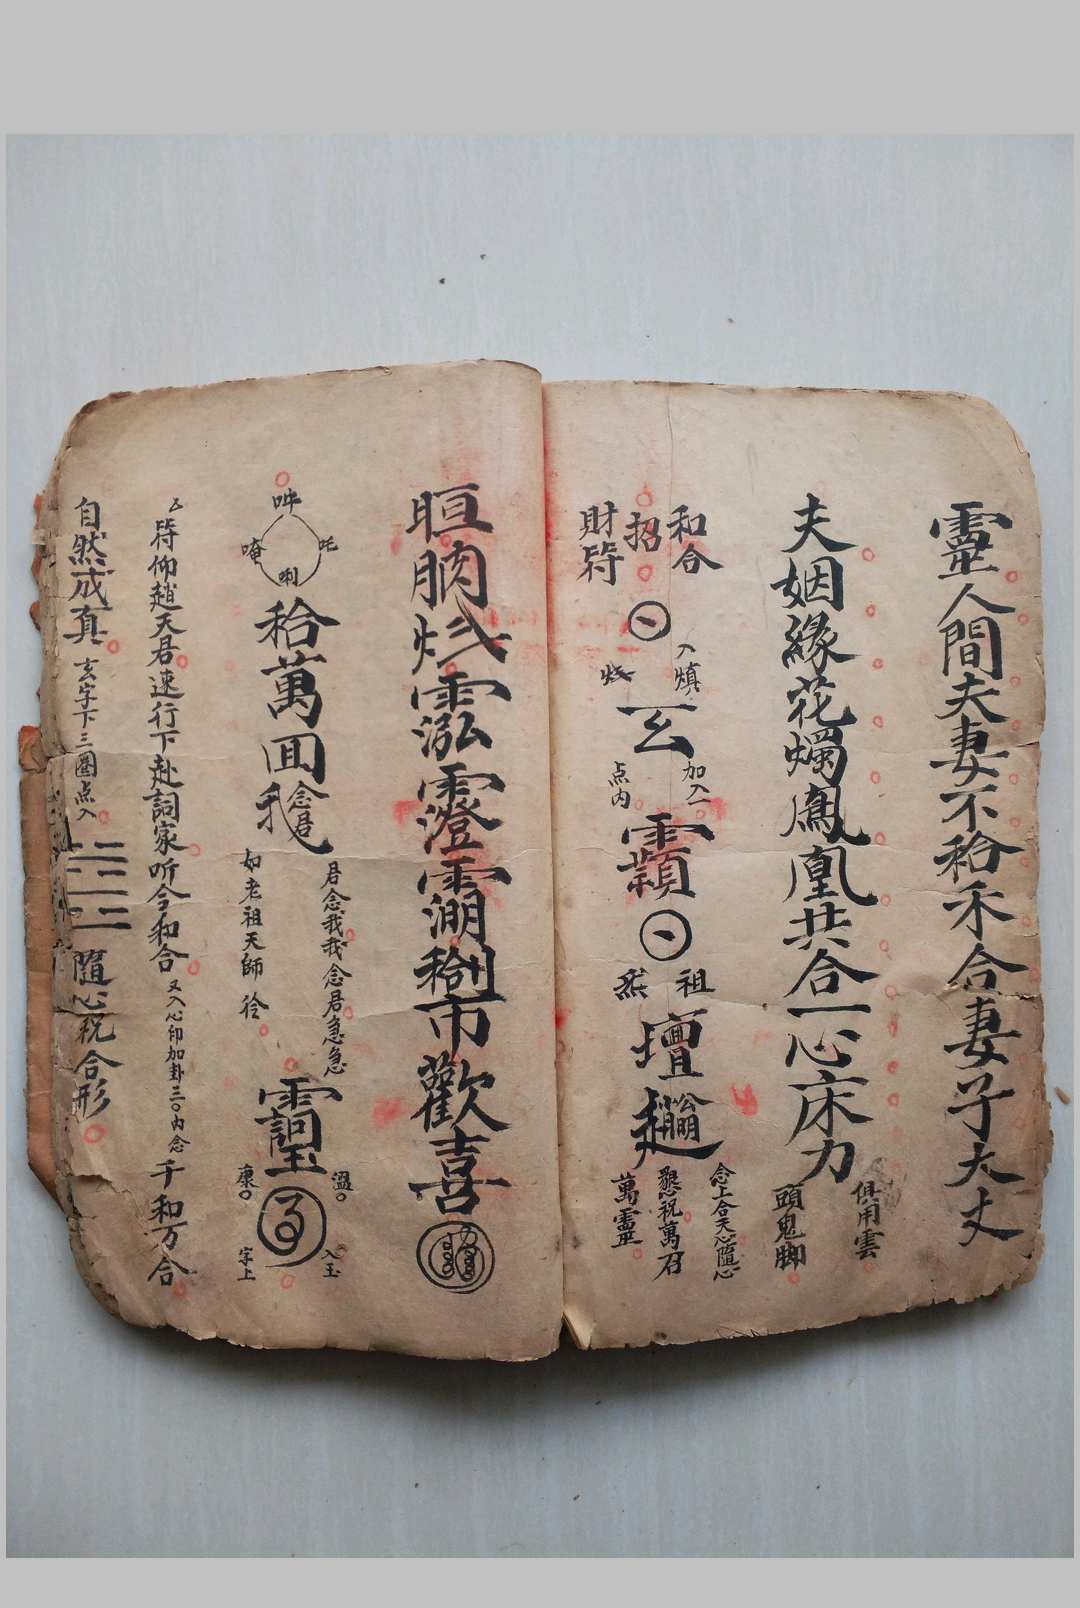 靈人間夫妻不袷禾合妻子大丈
夫姻緣花燭鳳凰共合一心床力
俱用雲
頭鬼脚
和合
招
財符
入
玄
加入一
点内
祖
然
念上合天心隨心
懇祝萬召
萬靈
市歡喜
吽
吒
唵
唎
袷萬囬
念君
我
君念我我念君急急
如老祖天師
溫
康
入玉
字上
符仰趙天君速行下赴詞家听令和合
又入心印加卦三〇内念
千和万合
自然成真
玄字下三圈点入
隨心祝合形